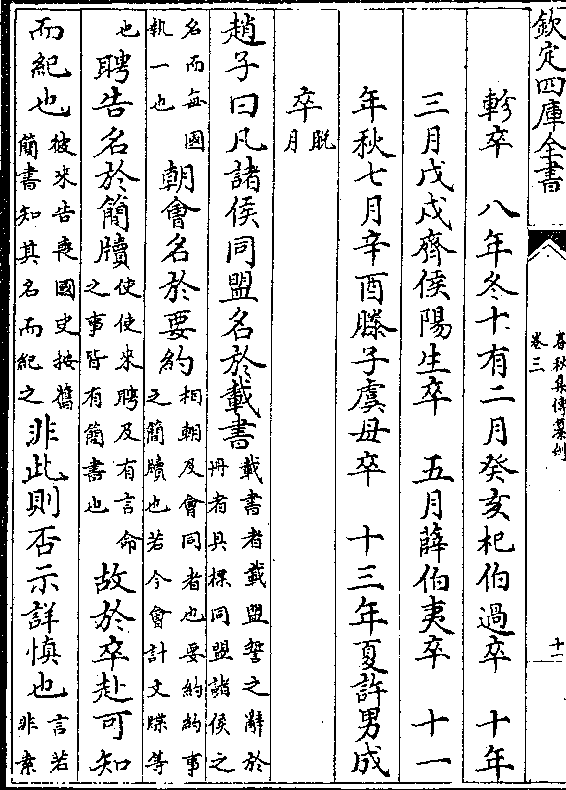 欽定四庫全書
春秋集傳纂例
卷三
十一
軫卒　八年冬十有二月癸亥杞伯過卒　十年
三月戊戌齊侯陽生卒　五月薛伯夷卒　十一
年秋七月辛酉滕子虞母卒　十三年夏許男成
卒脱月
趙子曰凡諸侯同盟名於載書載書者載盟誓之辭於册者具標同盟諸侯之
名而每國執一也朝會名於要約相朝及會同者也要約約事之簡牘也若今會計文牒等
也聘告名於簡牘使使來聘及有言命之事皆有簡書也故於卒赴可知
而紀也彼來告喪國史按舊簡書知其名而紀之非此則否示詳慎也言若非素